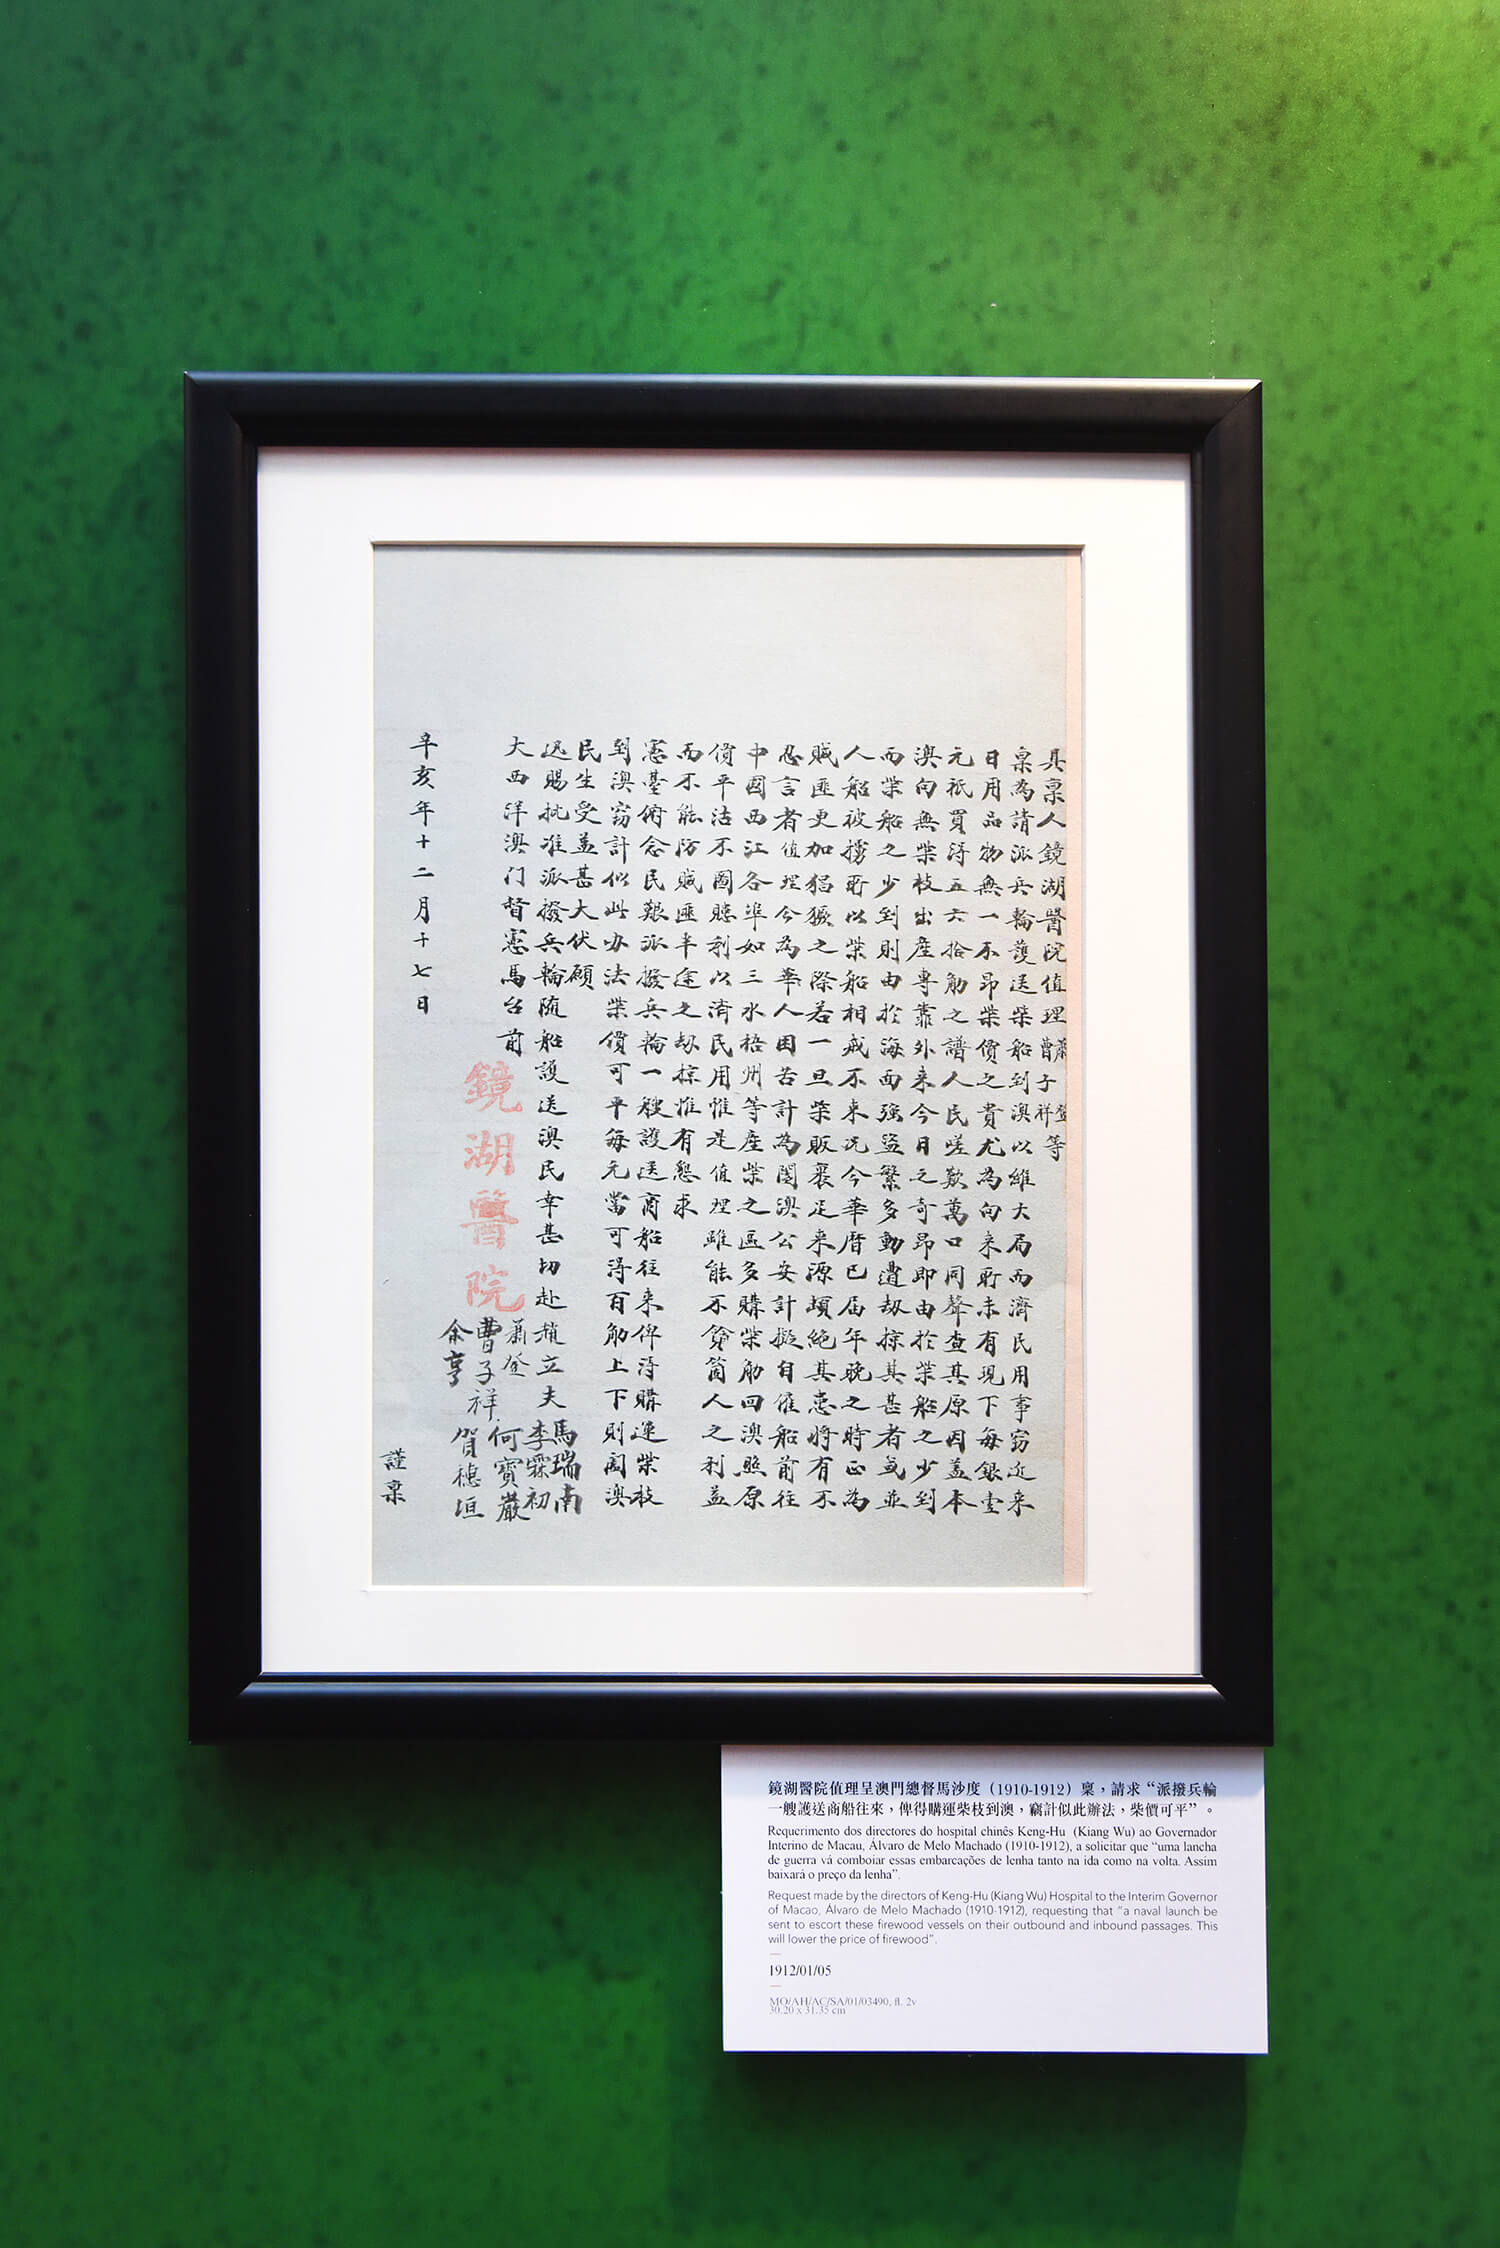 具稟人鏡湖醫院值理蕭登曹子祥等
稟為請派兵輪護送柴船到澳以維大局而濟民用事窃近来
日用品物無一不昂柴價之貴尤為向来所未有現下每銀壹
元祇買得五六拾觔之譜人民嗟歎萬口同聲查其原因蓋本
澳向無柴枝出產專靠外来今日之奇昂即由於柴船之少到
而柴船之少到則由於海面強盜繁多動遭劫掠其甚者或並
人船被擄所以柴船相戒不来况今華曆已屆年晚之時正為
賊匪更加猖獗之際若一旦柴販裹足来源頓絕其患將有不
忍言者值理今為華人困苦計為闔澳公安計擬自僱船前往
中國西江各埠如三水梧州等產柴之區多購柴觔回澳照原
價平沽不圖賺利以濟民用惟是值理雖能不貪箇人之利益
而不能防賊匪半途之劫掠惟有懇求
憲臺俯念民艱派撥兵輪一艘護送商船往来俾得購運柴枝
到澳窃計似此办法柴價可平每元當可得百觔上下則闔澳
民生受益甚大伏願
迅賜批准派撥兵輪随船護送澳民幸甚切赴
大西洋澳门督憲馬台前
馬瑞南
趙立夫
李霖初
蕭登
何寶巖
曹子祥
賀穗垣
余亨
鏡湖醫院
辛亥年十二月十七日
謹稟
鏡湖醫院值理呈澳門總督馬沙度（1910-1912）稟，請求“派撥兵輪
一艘護送商船往來，俾得購運柴枝到澳，竊計似此辦法，柴價可平”。
Requerimento dos directores do hospital chinês Keng-Hu (Kiang Wu) ao Governador
Interino de Macau, Álvaro de Melo Machado (1910-1912), a solicitar que “uma lancha
de guerra vá comboiar essas embarcações de lenha tanto na ida como na volta. Assim
baixará o preço da lenha”.
Request made by the directors of Keng-Hu (Kiang Wu) Hospital to the Interim Governor
of Macao, Álvaro de Melo Machado (1910-1912), requesting that “a naval launch be
sent to escort these firewood vessels on their outbound and inbound passages. This
will lower the price of firewood”.
1912/01/05
MO/AH/AC/SA/01/03490, fl. 2v
30.20 x 31.35 cm